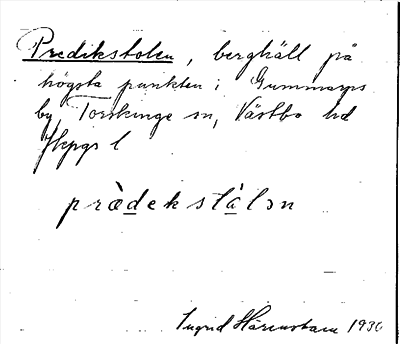 Predikstolen, berghäll på
högsta punkten i Gummarps
by, Torskinge sn, Västbo hd
Jkpgs l
præ̀dekstàlɔn
Ingrid 1930